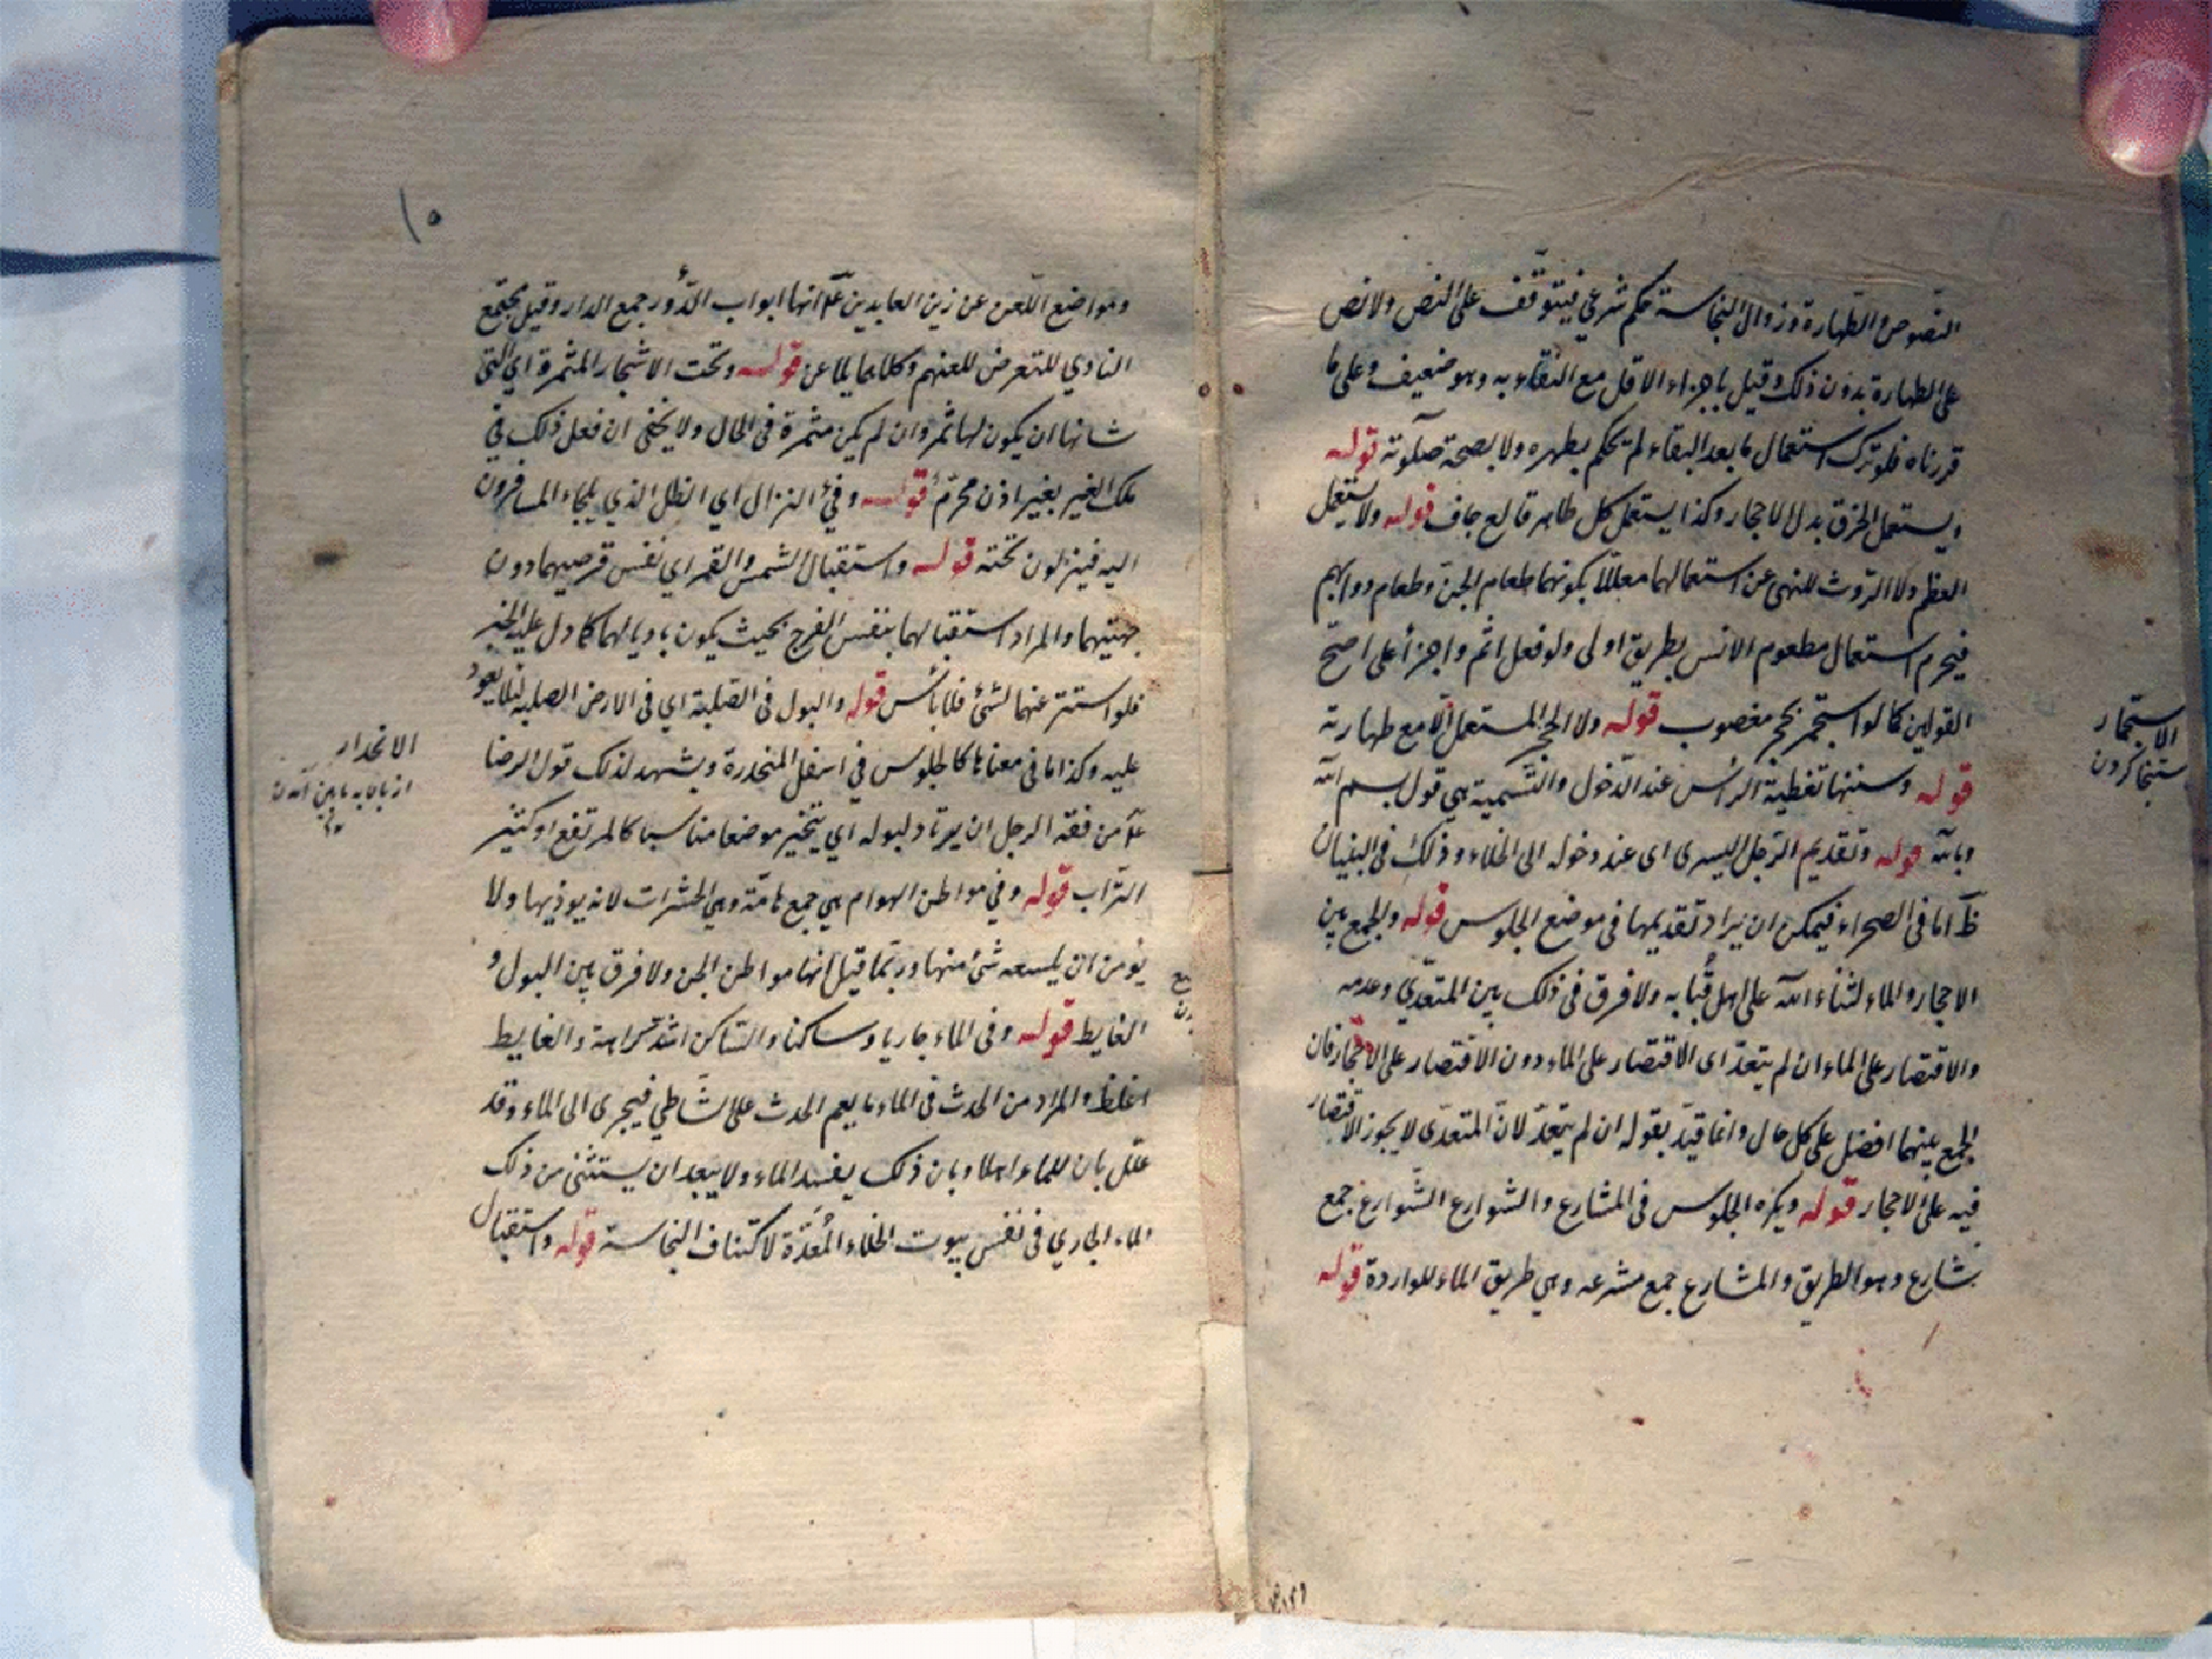 النصوص والطهارة وزوال النجاسة حكم شرعي فيتوقف على النص ولا نص
على الطهارة بدون ذلك وقيل باجزاء الاقل مع النقاء به وهو ضعيف وعلى ما
قررناه فلو ترك استعمال ما بعد النقاء لم يحكم بطهره ولا بصحة صلوته قوله
ويستعمل الخرق بدل الاحجار وكذا يستعمل كل طاهر قالع جاف قوله ولا يستعمل
العظم ولا الروث للنهى عن استعمالهما معللا بكونهما طعام الجن وطعام دوابهم
فيحرم استعمال مطعوم الانس بطريق اولى ولو فعل اثم واجزأ على اصح
القولين كما لو استجمر بحجر مغصوب قوله ولا الحجر المستعمل الا مع طهارته
قوله وسننها تغطية الراس عند الدخول والتسمية هي قول بسم الله
وبالله قوله وتقديم الرجل اليسرى اى عند دخوله الى الخلاء وذلك في البنيان
ظ اما في الصحراء فيمكن ان يراد تقديمها في موضع الجلوس قوله والجمع بين
الاحجار والماء لثناء الله على اهل قُبا به ولا فرق في ذلك بين المتعدّي وعدمه
والاقتصار على الماء ان لم يتعدّ اى الاقتصار على الماء دون الاقتصار على الاحجار فان
الجمع بينهما افضل على كل حال وانما قيّد بقوله ان لم يتعدّ لانّ المتعدّى لا يجوز الاقتصار
فيه على الاحجار قوله ويكره الجلوس في المشارع والشوارع الشّوارع جمع
شارع وهو الطريق والمشارع جمع مشرعه وهي طريق الماء للواردة قوله
الاستجمار
استنجا كردن
١٥
ومواضع اللّعن عن زين العابدين عم انها ابواب الدُّور جمع الدار وقيل مجتمع
النادي للتعرض للعنهم وكلاهما قوله وتحت الاشجار المثمرة اي التي
شانها ان يكون لها ثمر وان لم يكن مثمرة في الحال ولا يخفى ان فعل ذلك في
ملك الغير بغير اذن محرّم قوله وفئ النزال اي الظل الذي يلجاء المسافرون
اليه فينزلون تحته قوله واستقبال الشمس والقمر اي نفس قرصيهما دون
جهتيهما والمراد استقبالهما بنفس الفرج بحيث يكون باديا لهما كما دل عليه الخبر
فلو استتر عنهما بشئ فلا بأس قوله والبول في الصّلبة اي في الارض الصلبة لئلا يعود
عليه وكذا ما في معناها كالجلوس في اسفل المنحدرة ويشهد لذلك قول الرضا
عم من فقه الرجل ان يرتاد لبوله اي يتخير موضعا مناسبا كالمرتفع او كثير
التراب قوله وفي مواطن الهوام هي جمع هامّة وهي الحشرات لانه يوذيها ولا
يؤمن ان يلسعه شئ منها وربما قيل انها مواطن الجن ولا فرق بين البول و
الغايط قوله وفي الماء جاريا وساكنا والساكن اشد كراهة والغايط
اغلظ والمراد من الحدث في الماء ما يعم الحدث على شاطي فيجرى الى الماء وقد
علّل بان للماء اهلا وبان ذلك يفسد الماء ولا يبعد ان يستثنى من ذلك
الماء الجاري في نفس بيوت الخلاء المُعَدّة لاكتناف النجاسة قوله واستقبال
الانحدار